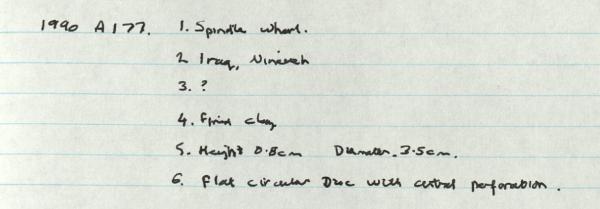 1990 A177. 1. Spindle whorl.
2 Iraq, Nineveh
3. ?
4. Fired clay
5. Height 0.8cm Diameter. 3.5cm.
6. Flat circular Disc with central perforation.